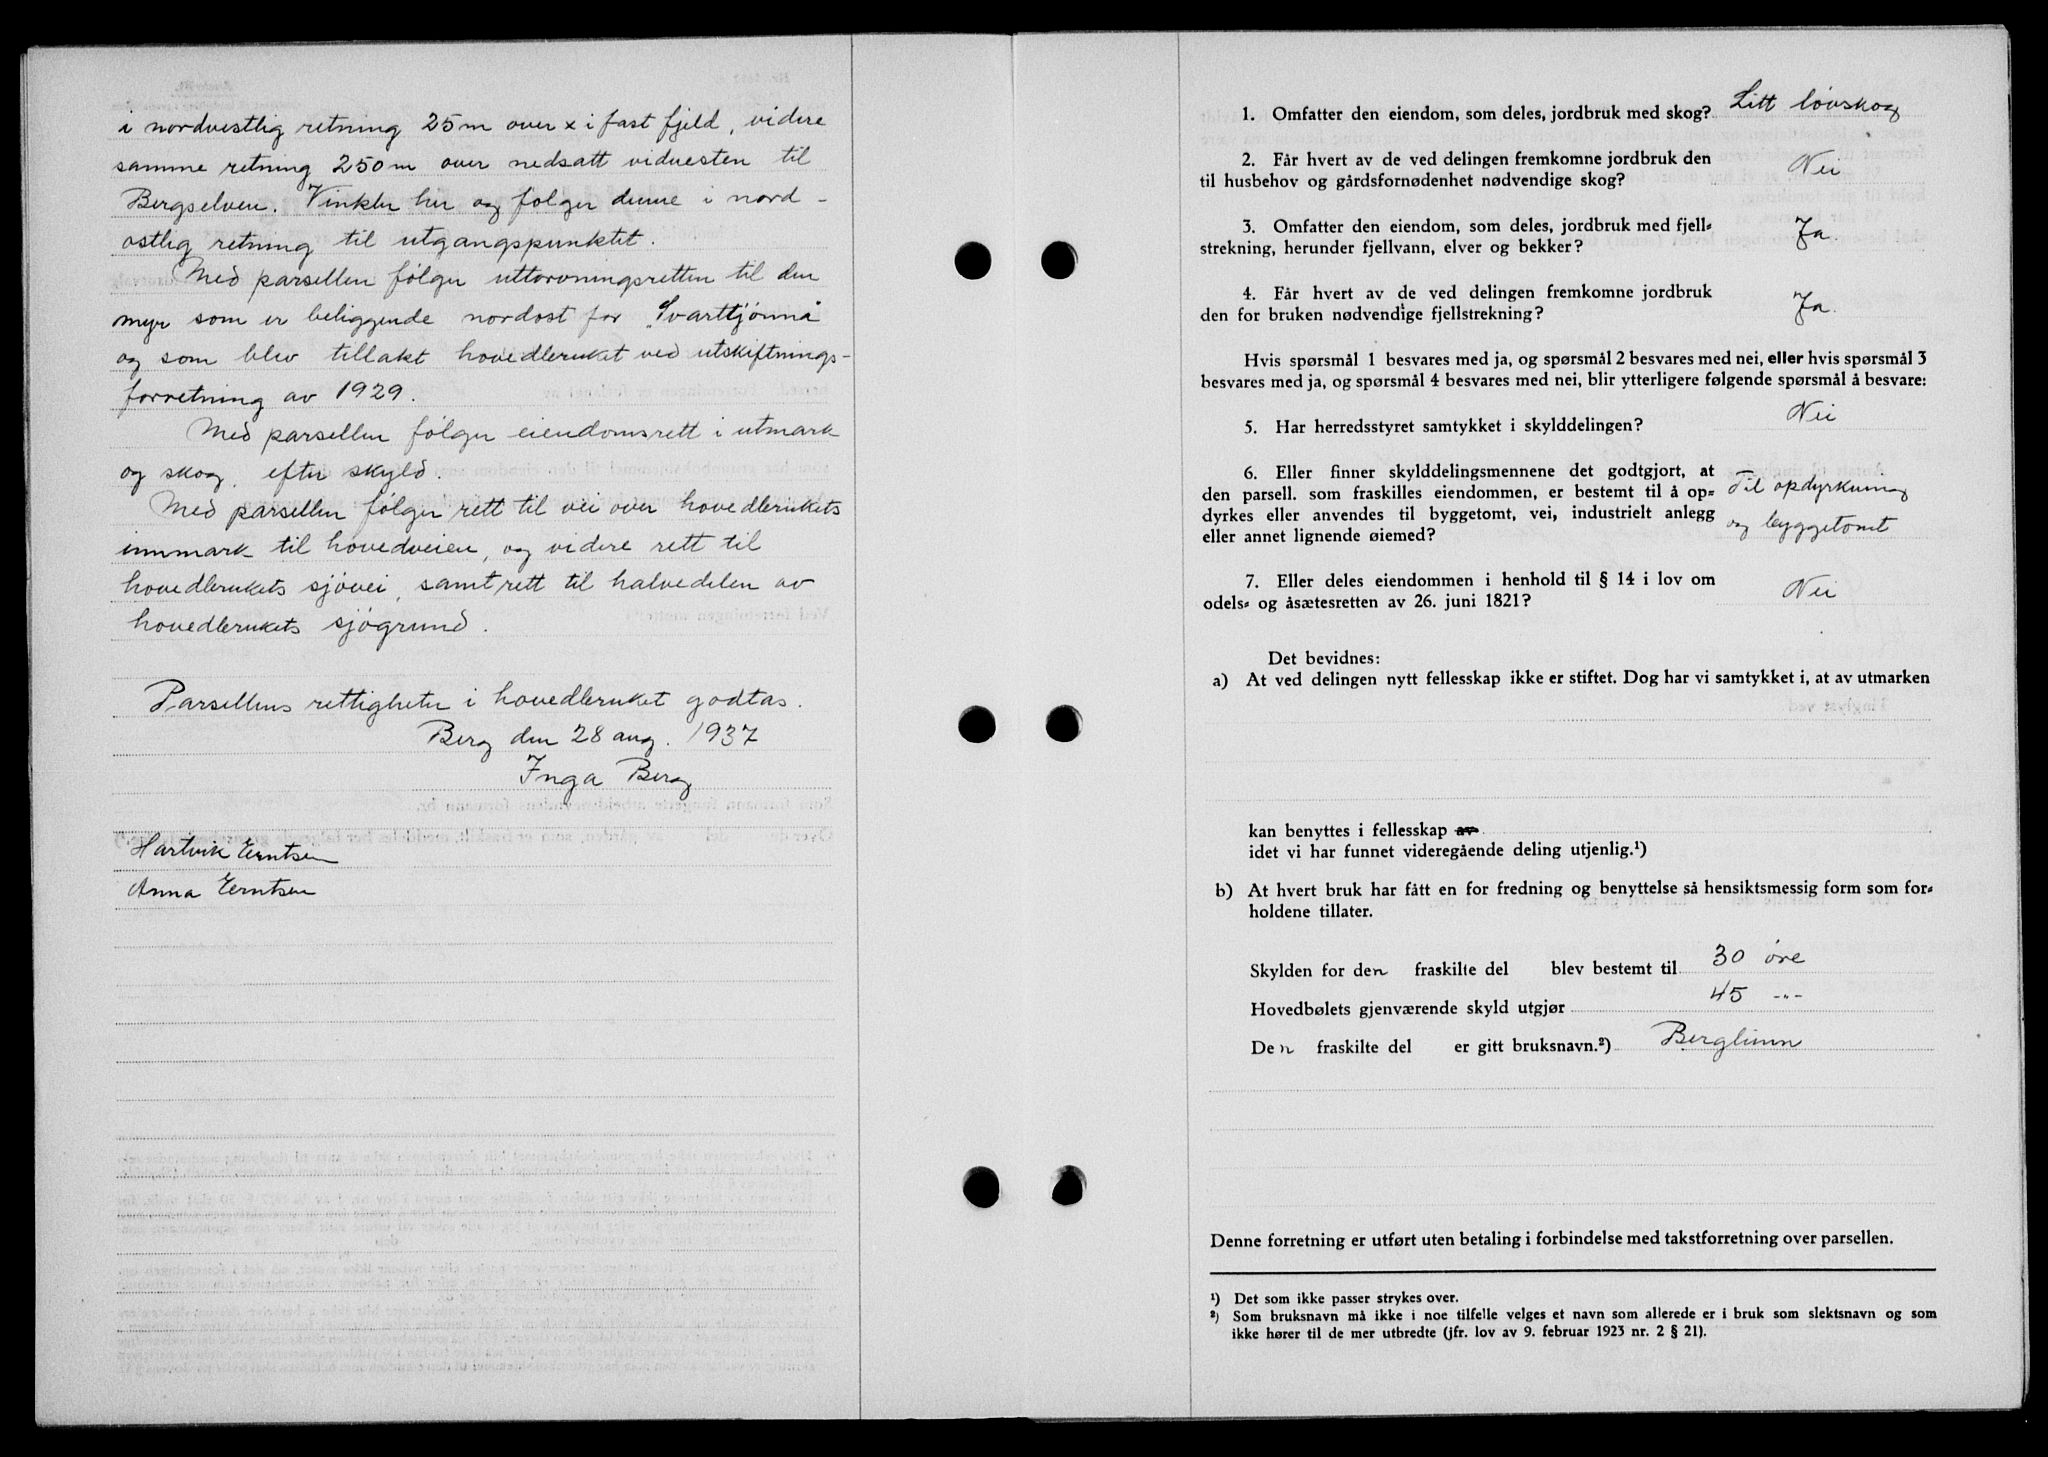 i nordvestlig retning 25m over x i fast fjeld, videre
samme retning 250m over nedsatt vidnesten til
Bergselven. Vinkler her og følger denne i nord-
ostlig retning til utgangspunktet.
Med parsellen følger uttorvningsretten til den
myr som er beliggende nordost for "Svarttjønnå"
og som blev tillakt hovedbruket ved utskiftnings-
forretning av 1929.
Med parsellen følger eiendomsrett i utmark
og skog, efter skyld.
Med parsellen følger rett til vei over hovedbrukets
innmark til hovedveien, og videre rett til
hovedbrukets sjøvei, samt rett til halvedelen av
hovedbrukets sjøgrund.
Parsellens rettigheter i hovedbruket godtas.
Berg den 28 aug. 1937
Inga Berg
Hartvik Erntsen
Anna Erntsen
1. Omfatter den eiendom, som deles, jordbruk med skog? Litt løvskog
2. Får hvert av de ved delingen fremkomne jordbruk den
til husbehov og gårdsfornødenhet nødvendige skog? Nei
3. Omfatter den eiendom, som deles, jordbruk med fjell-
strekning, herunder fjellvann, elver og bekker? Ja.
4. Får hvert av de ved delingen fremkomne jordbruk
den for bruken nødvendige fjellstrekning? Ja.
Hvis spørsmål 1 besvares med ja, og spørsmål 2 besvares med nei, eller hvis spørsmål 3
besvares med ja, og spørsmål 4 besvares med nei, blir ytterligere følgende spørsmål å besvare:
5. Har herredsstyret samtykket i skylddelingen? Nei
6. Eller finner skylddelingsmennene det godtgjort, at
den parsell. som fraskilles eiendommen, er bestemt til å op-
dyrkes eller anvendes til byggetomt, vei, industrielt anlegg
eller annet lignende øiemed? Til opdyrkning
og byggetomt
7. Eller deles eiendommen i henhold til § 14 i lov om
odels- og åsætesretten av 26. juni 1821? Nei
Det bevidnes:
a) At ved delingen nytt fellesskap ikke er stiftet. Dog har vi samtykket i, at av utmarken
kan benyttes i fellesskap av
idet vi har funnet videregående deling utjenlig.¹)
b) At hvert bruk har fått en for fredning og benyttelse så hensiktsmessig form som for-
holdene tillater.
Skylden for den fraskilte del blev bestemt til 30 øre
Hovedbølets gjenværende skyld utgjør 45 -"-
Den fraskilte del er gitt bruksnavn.²) Berglinn
Denne forretning er utført uten betaling i forbindelse med takstforretning over parsellen.
¹) Det som ikke passer strykes over.
²) Som bruksnavn må ikke i noe tilfelle velges et navn som allerede er i bruk som slektsnavn og som
ikke hører til de mer utbredte (jfr. lov av 9. februar 1923 nr. 2 § 21).